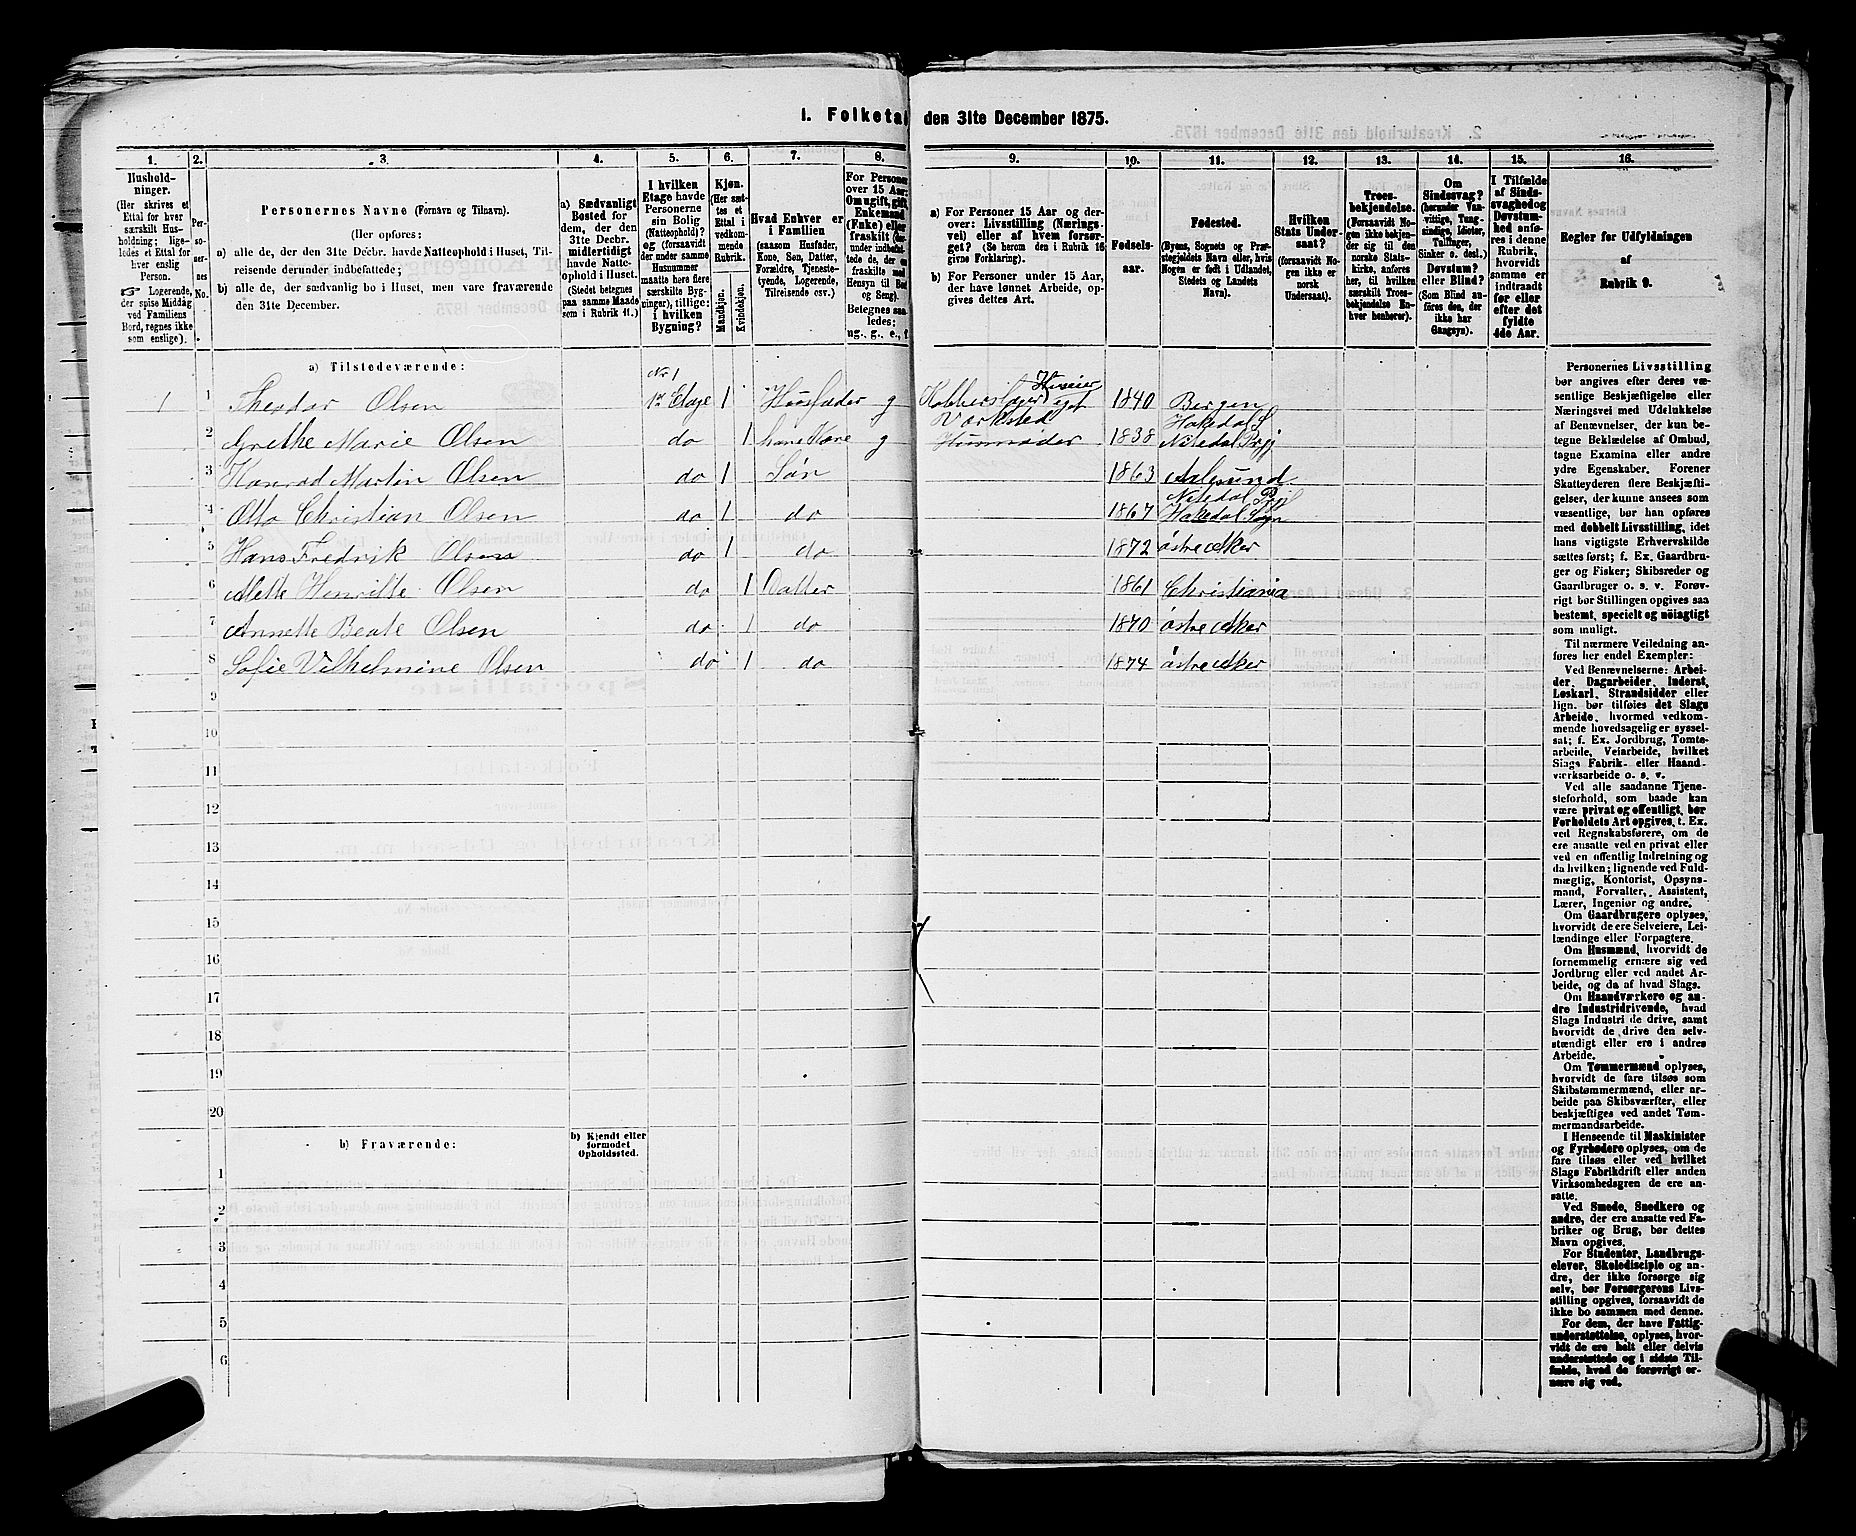 1. Folketal den 31te December 1875.
1. 2. 3. 4. 5. 6. 7. 8. 9. 10. 11. 12. 13. 14. 15. 16.
Hushold-
ninger.
(Her skrives et
Ettal for hver
særskilt Hus-
holdning; lige-
ledes et Ettal for
hver enslig
Person.
☞ Logerende,
der spise Middag
ved Familiens
Bord, regnes ikke
som enslige).
Per-
so-
ner-
nes
No.
Personernes Navne (Fornavn og Tilnavn).
(Her opføres:
a) alle de, der den 31te Decbr. havde Natteophold i Huset, Til-
reisende derunder indbefattede;
b) alle de, der sædvanlig bo i Huset, men vare fraværende
den 31te December.
a) Sædvanligt
Bosted for
dem, der den
31te Decbr.
midlertidigt
havde Natte-
ophold i Huset.
(Stedet betegnes
paa samme Maade
som i Rubrik 11.)
I hvilken
Etage havde
Personerne
sin Bolig
(Natteophold)?
og (forsaavidt
der under samme
Husnummer
maatte høre flere
særskilte Byg-
ninger), tillige:
i hvilken
Bygning?
Kjøn.
(Her sæt-
tes et
Ettal i
vedkom-
mende
Rubrik.
Mandkjøn.
Kvindekjøn.
Hvad Enhver er
i Familien
(saasom Husfader,
Kone, Søn, Datter,
Forældre, Tjeneste-
tyende, Logerende,
Tilreisende osv.)
For Personer
over 15 Aar:
Om ugift, gift,
Enkemand
(Enke) eller
fraskilt
Betegnes saa-
ledes:
ug., g., e., f.
a) For Personer 15 Aar og der-
over: Livsstilling (Nærings-
vei) eller af hvem forsør-
get? (Se herom den i Rubrik 16
givne Forklaring).
b) For Personer under 15 Aar,
der have lønnet Arbeide, op-
gives dettes Art.
Fødsels-
aar.
Fødested.
(Byens, Sognets og Præ-
stegjeldets Navn eller, hvis
Nogen er født i Udlandet,
Stedets og Landets
Navn).
Hvilken
Stats Under-
saat?
(forsaavidt No-
gen ikke er
norsk
Undersaat).
Troes-
bekjendelse.
(Forsaavidt No-
gen ikke bekjen-
der sig til den
norske Stats-
kirke, anføres
her, til hvilken
særskilt Troes-
bekjendelse En-
hver henhører).
Om
Sindssvag?
(herunder Van-
vittige, Tung-
sindige, Idioter,
Tullinger,
Sinker o. desl.)
Døvstum?
eller Blind?
(Som Blind an-
føres den, der
ikke har
Gangsyn).
I Tilfælde
af Sinds-
svaghed og
Døvstum-
hed anfø-
res i denne
Rubrik,
hvorvidt
samme er
indtraadt
før eller
efter det
fyldte
4de Aar.
Regler for Udfyldningen
af
Rubrik 9.
a) Tilstedeværende:
1 1 Theodor Olsen No 1 1ste Etage 1 Husfader g Kobberslager Huseier eget Værksted 1840 Bergen
2 Grethe Marie Olsen do 1 hans Kone g Husmoder 1838 Hakedal S. Nitedal Prgj
3 Konrad Martin Olsen do 1 Søn 1863 Aalesund
4 Otto Christian Olsen do 1 do 1867 Nitedal Pgjl Hakedal Sogn
5 Hans Fredrik Olsen do 1 do 1872 østre Aker
6 Alette Henritte Olsen do 1 Datter 1861 Christiania
7 Annette Beate Olsen do 1 do 1870 østre Aker
8 Sofie Vilhelmine Olsen do 1 do 1874 østre Aker
9
10
11
12
13
14
15
16
17
18
19
20
b) Fraværende:
b) Kjendt eller
formodet
Opholdssted.
1
2
3
4
5
6
Personernes Livsstilling
bør angives efter deres væ-
sentlige Beskjæftigelse eller
Næringsvei med Udelukkelse
af Benævnelser, der kun be-
tegne Beklædelse af Ombud,
tagne Examina eller andre
ydre Egenskaber. Forener
Skatteyderen flere Beskjæfti-
gelser, der kunne ansees som
væsentlige, bør han opføres
med dobbelt Livsstilling, idet
hans vigtigste Erhvervskilde
sættes først; f. Ex. Gaardbru-
ger og Fisker; Skibsreder og
Gaardbruger o. s. v. Forøv-
rigt bør Stillingen opgives saa
bestemt, specielt og nøiagtigt
som muligt.
Til nærmere Veiledning an-
føres her endel Exempler:
Ved Benævnelserne: Arbei-
der, Dagarbeider, Inderst,
Løskarl, Strandsidder eller
lign. bør tilføies det Slags
Arbeide, hvormed vedkom-
mende hovedsagelig er syssel-
sat; f. Ex. Jordbrug, Tomte-
arbeide, Veiarbeide, hvilket
Slags Fabrik- eller Haand-
værksarbeide o. s. v.
Ved alle saadanne Tjene-
steforhold, som baade kan
være privat og offentligt, bør
Forholdets Art opgives, t. Ex.
ved Regnskabsførere, om de
ere ansatte ved en privat eller
ved en offentlig Indretning og
da hvilken; lignende ved Fuld-
mægtig, Kontorist, Opsyns-
mand, Forvalter, Assistent,
Lærer, Ingeniør og andre.
Om Gaardbrugere oplyses,
hvorvidt de ere Selveiere, Lei-
lændinge eller Forpagtere.
Om Husmænd, hvorvidt de
fornemmelig ernære sig ved
Jordbrug eller ved andet Ar-
beide, og da af hvad Slags.
Om Haandværkere og an-
dre Industridrivende, hvad
Slags Industri de drive, samt
hvorvidt de drive den selv-
stændigt eller ere i andres
Arbeide.
Om Tømmermænd oplyses,
hvorvidt de fare tilsøs som
Skibstømmermænd, eller ar-
beide paa Skibsværfter, eller
beskjæftiges ved andet Tøm-
mermandsarbeide.
I Henseende til Maskinister
og Fyrbødere oplyses, om de
fare tilsøs eller ved hvilket
Slags Fabrikdrift eller anden
Virksomhedsgren de ere an-
satte.
Ved Smede, Snedkere og
andre, der ere ansatte ved Fa-
briker og Brug, bør dettes
Navn opgives.
For Studenter, Landbrugs-
elever, Skoledisciple og an-
dre, der ikke forsørge sig
selv, bør Forsørgerens Livs-
stilling opgives, forsaavidt de
ikke bo sammen med denne.
For dem, der have Fattig-
understøttelse, oplyses, hvor-
vidt de ere helt eller delvis
understøttede og i sidste Til-
fælde, hvad de forøvrigt er-
nære sig ved.